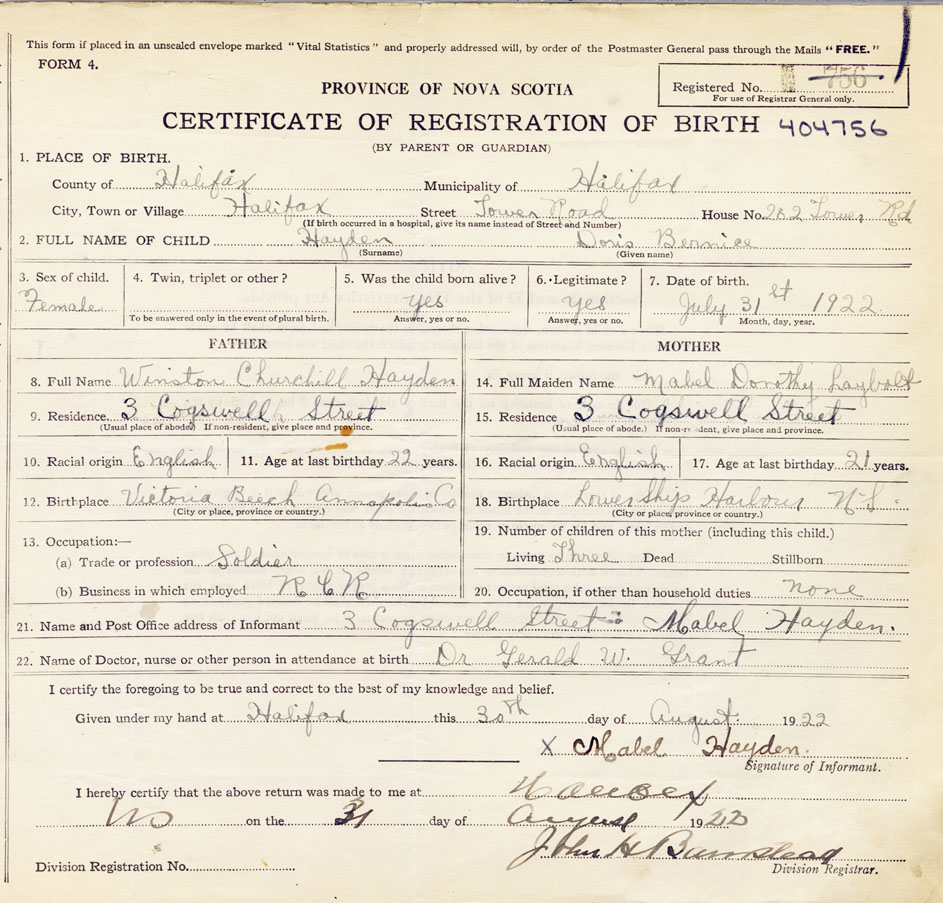 This form if placed in an unsealed envelope marked "Vital Statistics" and properly addressed will, by order of the Postmaster General pass through the Mails "FREE."
FORM 4.
Registered No. 756
For use of Registrar General only.
PROVINCE OF NOVA SCOTIA
CERTIFICATE OF REGISTRATION OF BIRTH 404756
(BY PARENT OR GUARDIAN)
1. PLACE OF BIRTH.
County of Halifax Municipality of Halifax
City, Town or Village Halifax Street Tower Road House No. 282 Tower Rd
(If birth occurred in a hospital, give its name instead of Street and Number)
2. FULL NAME OF CHILD Hayden Doris Bernice
(Surname) (Given name)
3. Sex of child. 4. Twin, triplet or other? 5. Was the child born alive? 6. Legitimate? 7. Date of birth.
Female yes yes July 31st 1922
To be answered only in the event of plural birth. Answer, yes or no. Answer, yes or no. Month, day, year.
FATHER MOTHER
8. Full Name Winston Churchill Hayden 14. Full Maiden Name Mabel Dorothy Laybolt
9. Residence 3 Cogswell Street 15. Residence 3 Cogswell Street
(Usual place of abode) If non-resident, give place and province. (Usual place of abode.) If non-resident, give place and province.
10. Racial origin English 11. Age at last birthday 22 years. 16. Racial origin English 17. Age at last birthday 21 years.
12. Birthplace Victoria Beech Annapolis Co 18. Birthplace Lower Ship Harbour N-S.
(City or place, province or country.) (City or place, province or country.)
13. Occupation:— 19. Number of children of this mother (including this child.)
(a) Trade or profession Soldier Living Three Dead Stillborn
(b) Business in which employed R C R 20. Occupation, if other than household duties none
21. Name and Post Office address of Informant 3 Cogswell Street: Mabel Hayden.
22. Name of Doctor, nurse or other person in attendance at birth Dr Gerald W. Grant
I certify the foregoing to be true and correct to the best of my knowledge and belief.
Given under my hand at Halifax this 30th day of August 1922
X Mabel Hayden.
Signature of Informant.
I hereby certify that the above return was made to me at Halifax
NS on the 31 day of August 1922
John H Barnstead
Division Registration No. Division Registrar.